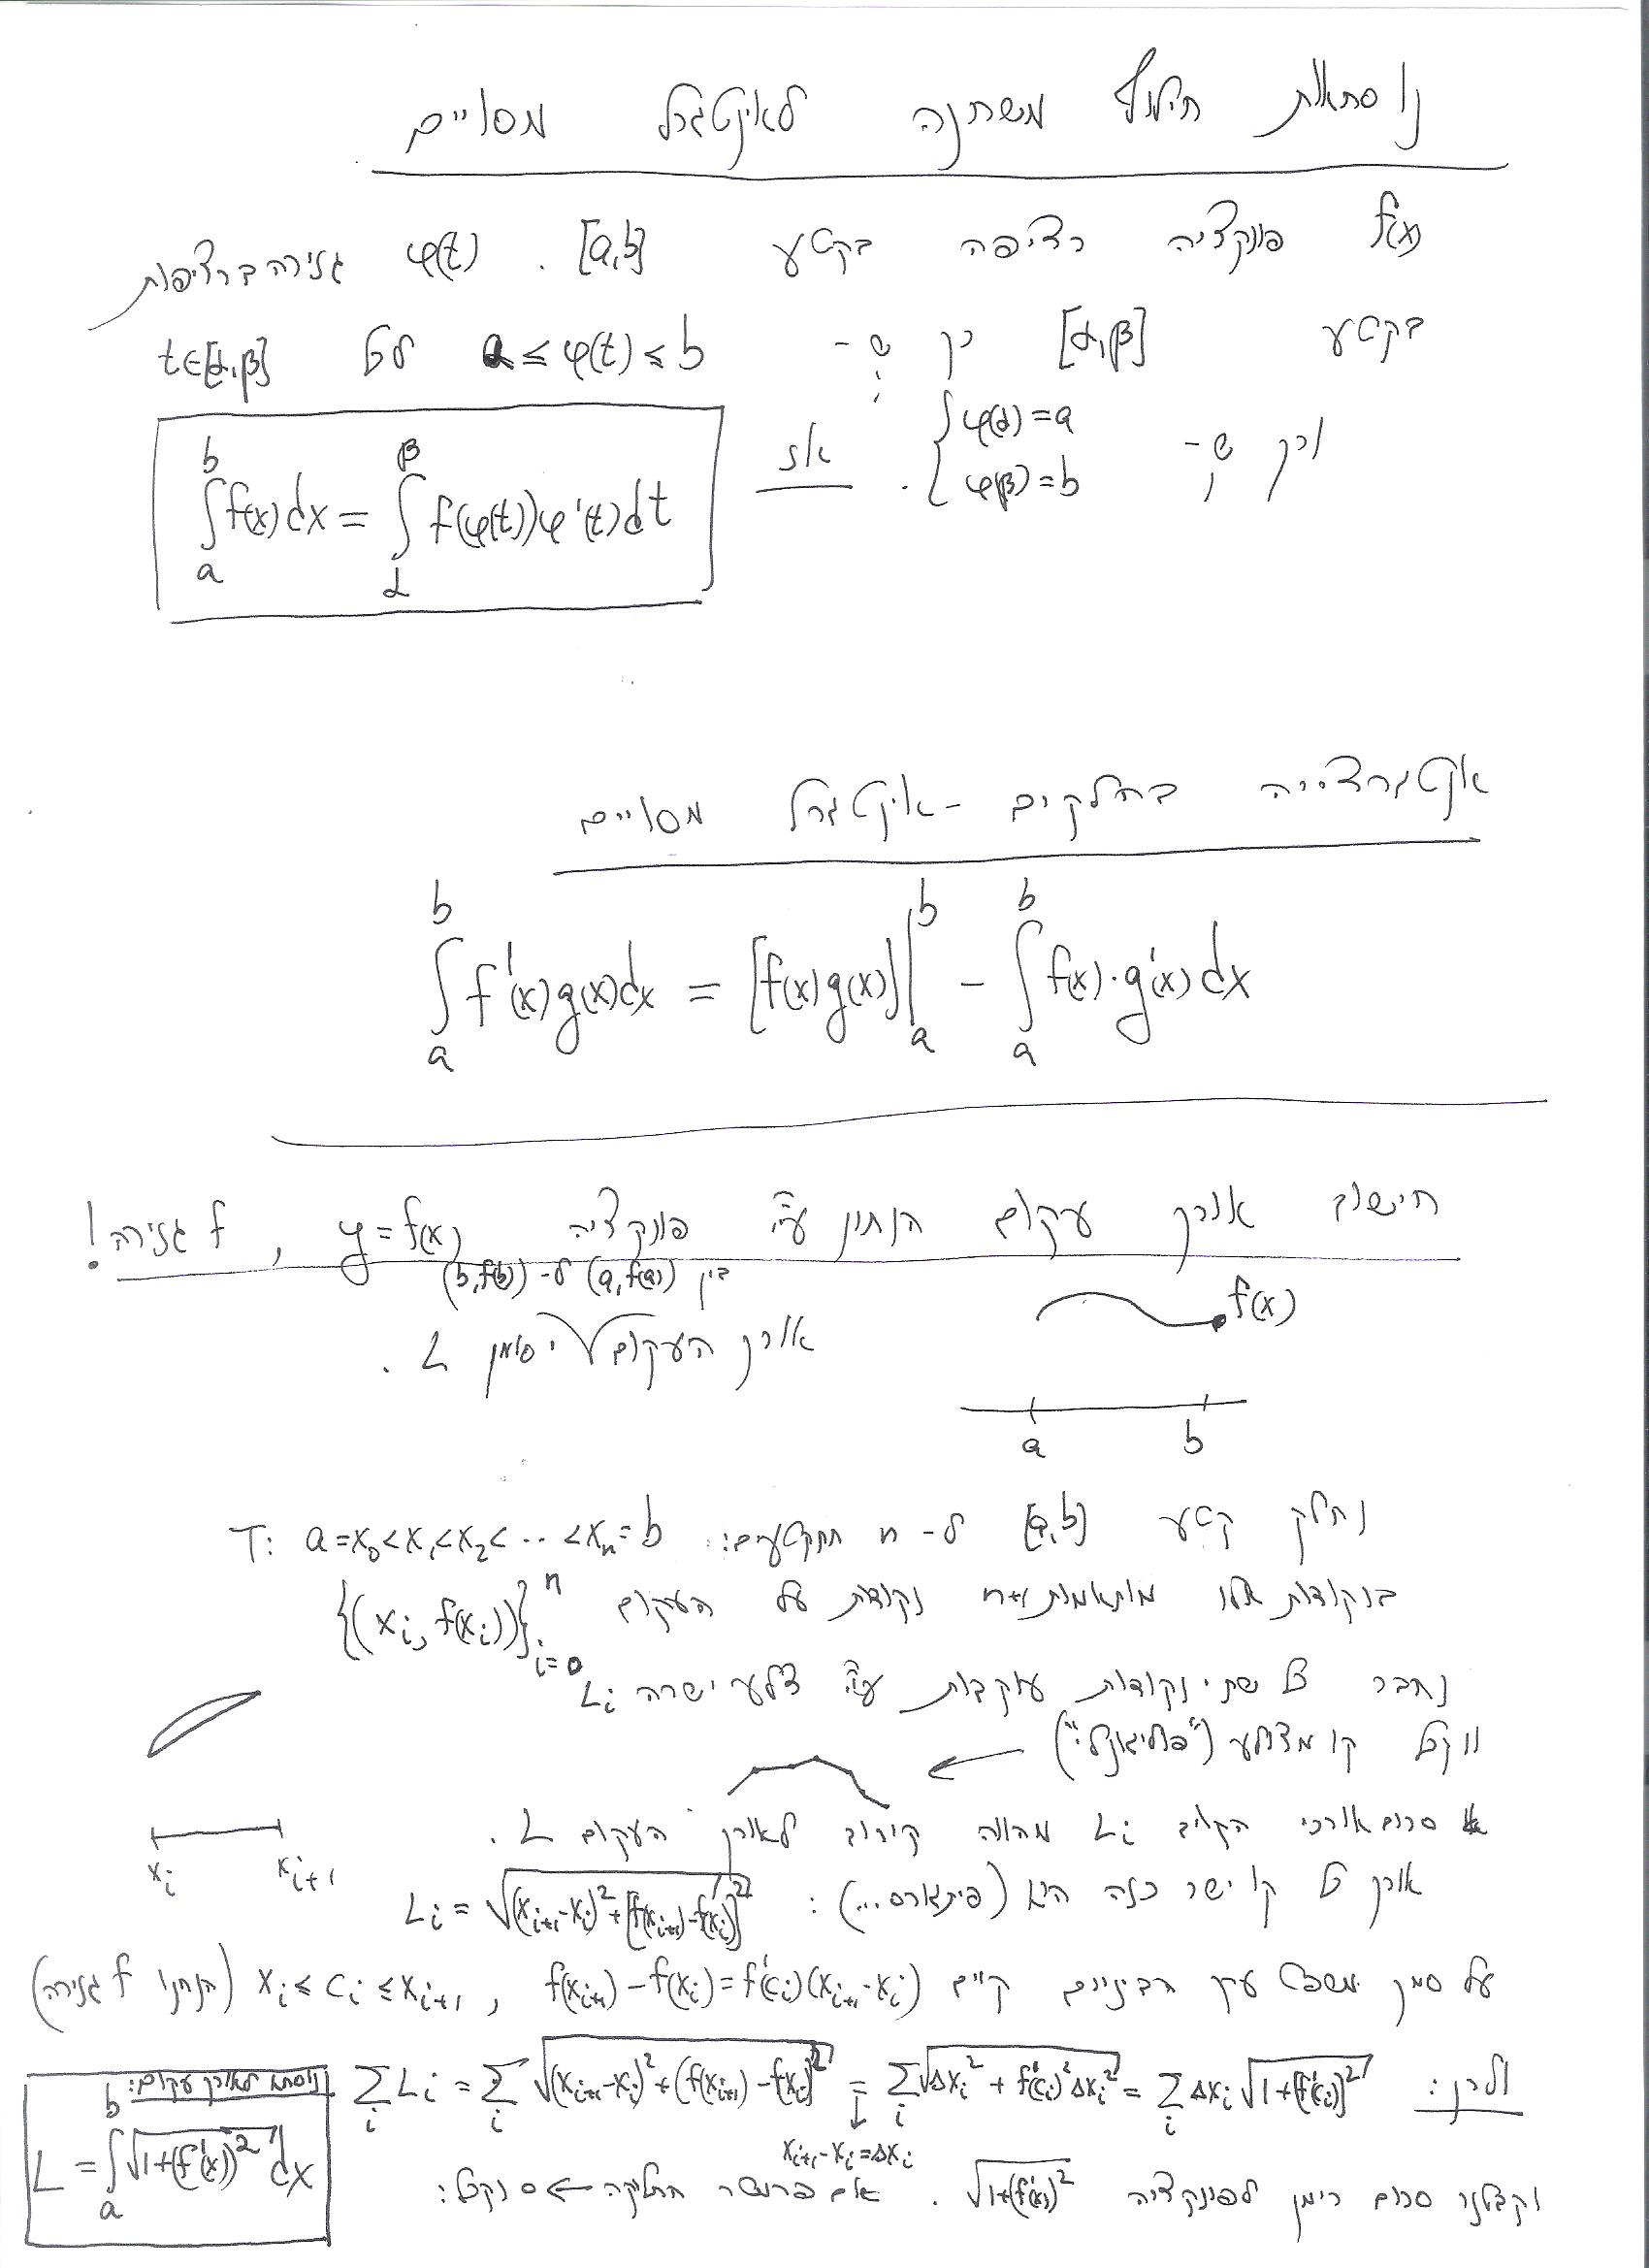 נוסחאת חילוף משתנה לאינטגרל מסויים
f(x) פונקציה רציפה בקטע [a,b] . φ(t) גזירה ברציפות
בקטע [α,β] כך ש- a ≤ φ(t) ≤ b לכל t∈[α,β]
וכך ש- { φ(α)=a
φ(β)=b . אז
∫_a^b f(x)dx = ∫_α^β f(φ(t))φ'(t)dt
אינטגרצייה בחלקים - אינטגרל מסויים
∫_a^b f'(x)g(x)dx = [f(x)g(x)]|_a^b - ∫_a^b f(x)·g'(x)dx
חישוב אורך עקום הנתון ע"י פונקציה y=f(x) , f גזירה!
בין (a,f(a)) ל- (b,f(b))
f(x)
אורך העקום יסומן L .
a b
נחלק קטע [a,b] ל- n תתקטעים: T: a=x₀<x₁<x₂<...<xₙ=b
בנקודות אלו מותאמות n+1 נקודות על העקום {(xᵢ, f(xᵢ))}ⁿ_{i=0}
נחבר כל שתי נקודות עוקבות ע"י צלע ישרה Lᵢ
ונקבל קו מצולע ("פוליגונלי")
סכום אורכי הקוים Lᵢ מהווה קירוב לאורך העקום L .
xᵢ xᵢ₊₁
אורך כל קו ישר כזה הוא (פיתגורס...) : Lᵢ = √((xᵢ₊₁-xᵢ)²+[f(xᵢ₊₁)-f(xᵢ)]²)
על סמך משפט ערך הביניים קיים f(xᵢ₊₁)-f(xᵢ)=f'(cᵢ)(xᵢ₊₁-xᵢ) , xᵢ ≤ cᵢ ≤ xᵢ₊₁ (הנחנו f גזירה)
ולכן: ∑ᵢ Lᵢ = ∑ᵢ √((xᵢ₊₁-xᵢ)²+(f(xᵢ₊₁)-f(xᵢ))²) = ∑ᵢ √(Δxᵢ²+f'(cᵢ)²Δxᵢ²) = ∑ᵢ Δxᵢ √(1+[f'(cᵢ)]²)
xᵢ₊₁-xᵢ=Δxᵢ
וקבלנו סכום רימן לפונקציה √(1+(f'(x))²) . אם פרמטר החלוקה → 0 נקבל:
נוסחא לאורך עקום:
L = ∫_a^b √(1+(f'(x))²) dx